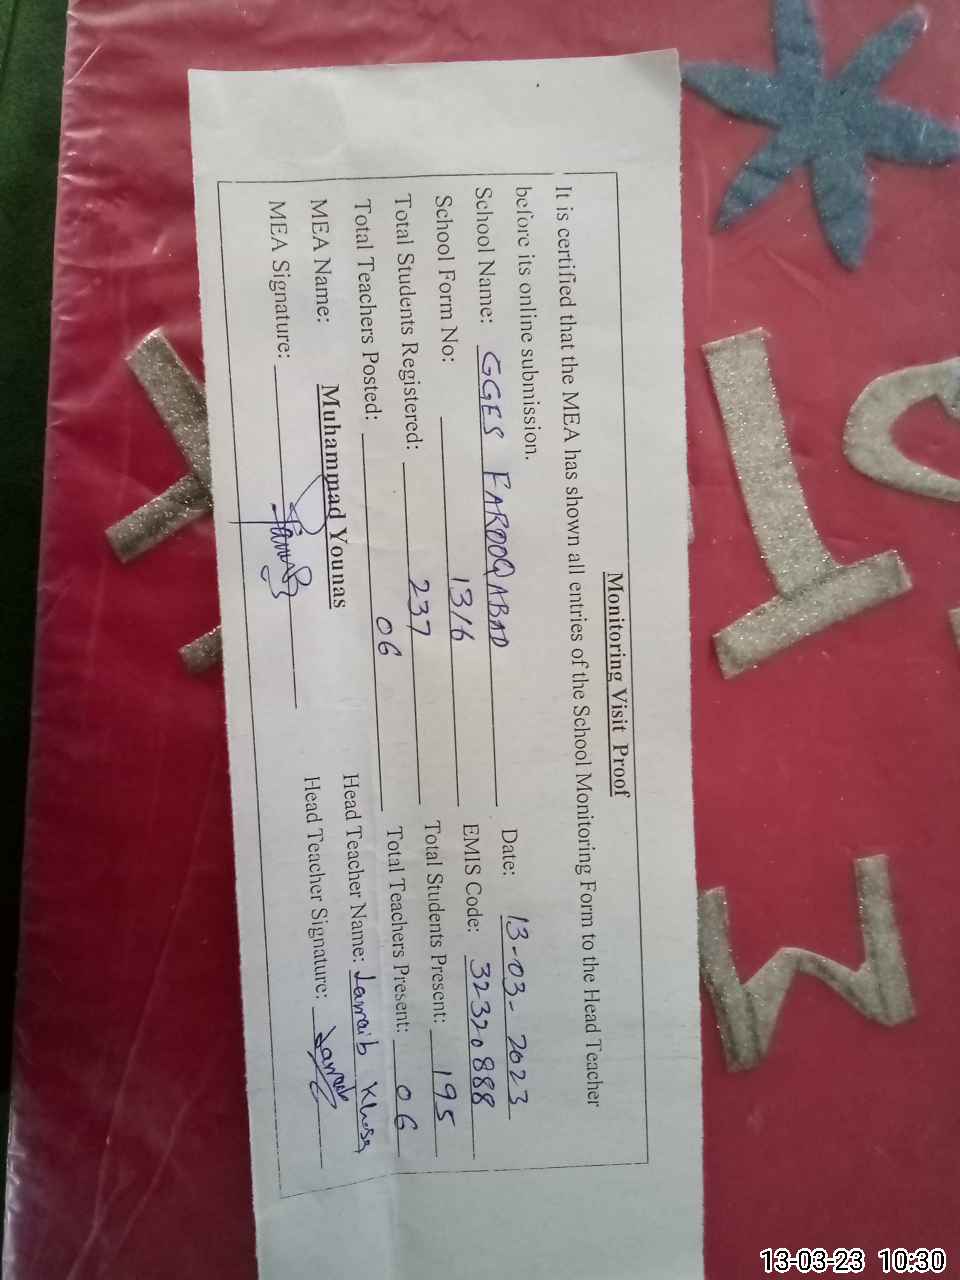 Monitoring Visit Proof
It is certified that the MEA has shown all entries of the School Monitoring Form to the Head Teacher
before its online submission.
School Name: GGES FAROOQABAD Date: 13-03-2023
School Form No: 1316 EMIS Code: 32320888
Total Students Registered: 237 Total Students Present: 195
Total Teachers Posted: 06 Total Teachers Present: 06
MEA Name: Muhammad Younas Head Teacher Name: Larraib Khosa
MEA Signature: Head Teacher Signature:
13-03-23 10:30